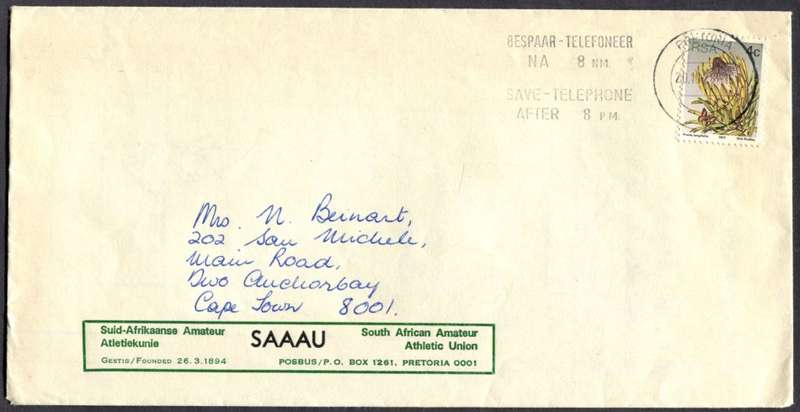 BESPAAR-TELEFONEER
NA 8 NM.
SAVE-TELEPHONE
AFTER 8 PM.
PRETORIA
RSA
4c
Mrs. N. Beinart,
202 San Michele,
Main Road,
Two Anchorbay
Cape Town 8001.
Suid-Afrikaanse Amateur
Atletiekunie
GESTIG/FOUNDED 26.3.1894
SAAAU
South African Amateur
Athletic Union
POSBUS/P.O. BOX 1261, PRETORIA 0001